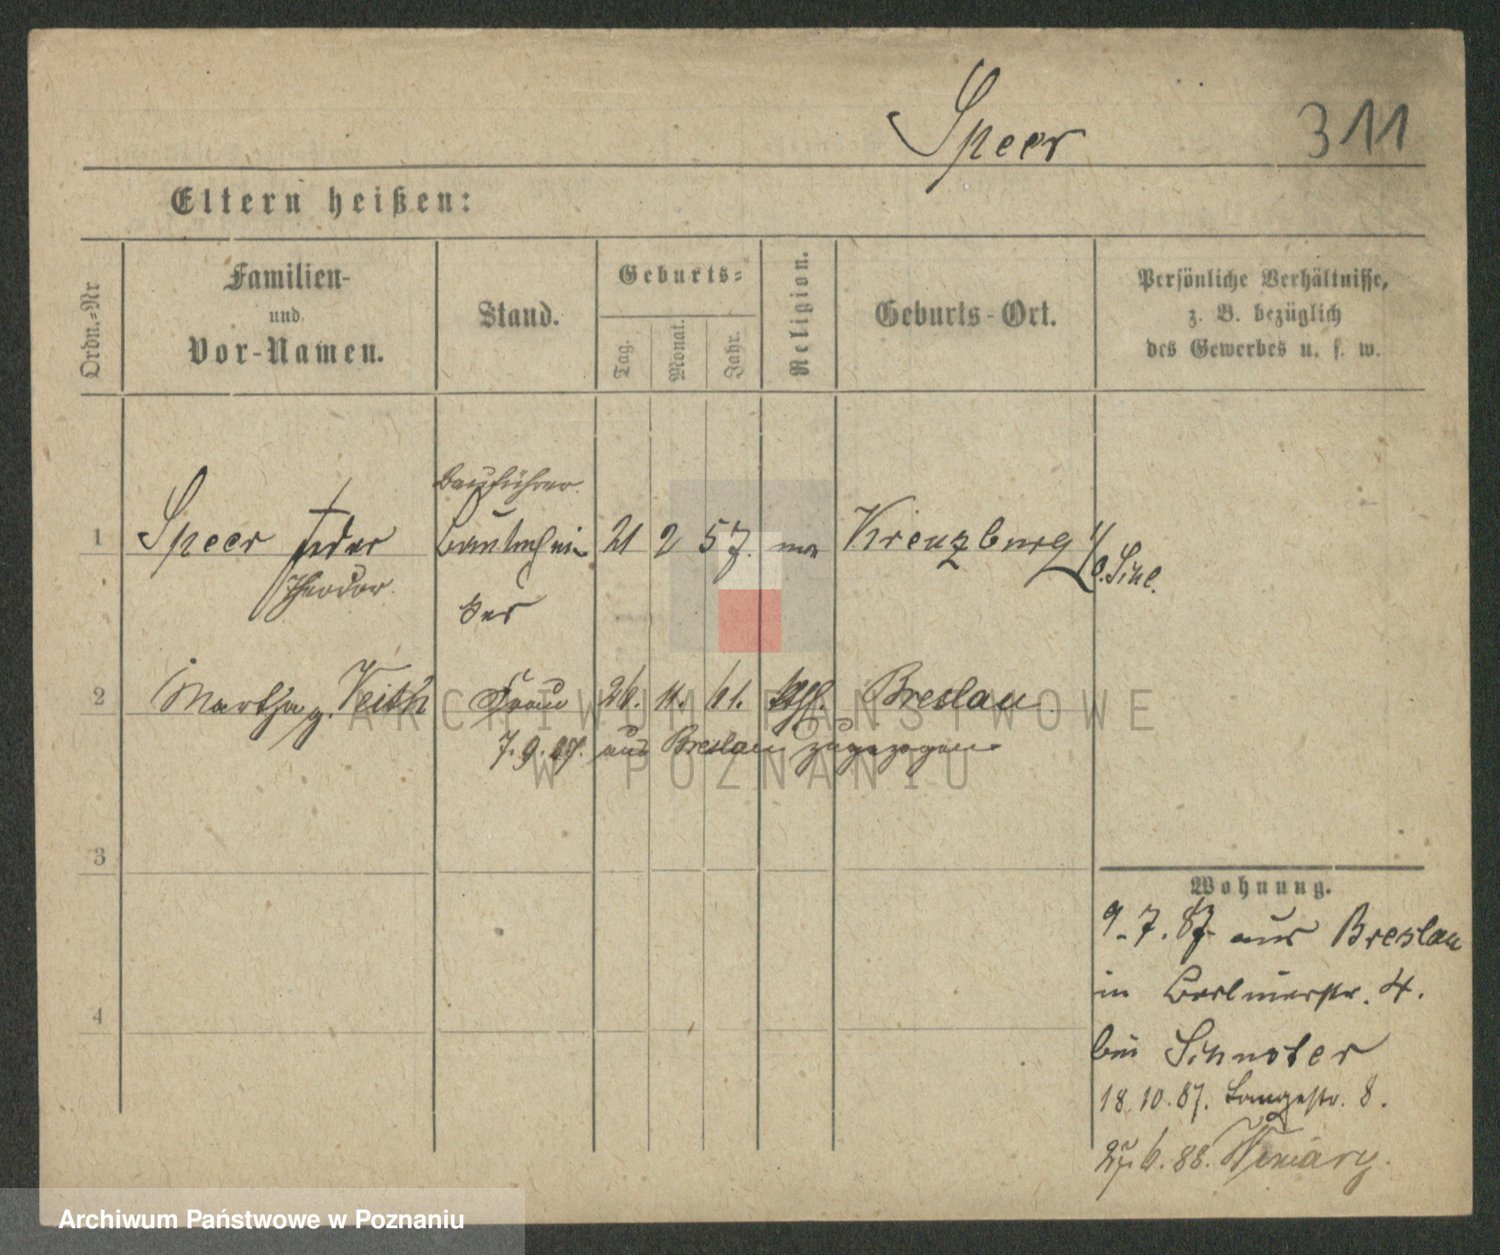 Speer 311
Eltern heißen:
Ordn.=Nr
Familien-
und
Vor-Namen.
Stand.
Geburts=
Tag.
Monat.
Jahr.
Religion.
Geburts-Ort.
Persönliche Verhältnisse,
z. B. bezüglich
des Gewerbes u. s. w.
Bauführer
1 Speer 21 2 57. Kreuzburg
Theodor
2 Martha g. Veith Frau 26. 11. 61. Breslau
7. 9. 87. aus Breslau zugezogen
ARCHIWUM PAŃSTWOWE
W POZNANIU
3
4
Wohnung.
9. 7. 87. aus Breslau
in Berlinerstr. 4.
bei
18. 10. 87. Langestr. 8.
6. 88.
Archiwum Państwowe w Poznaniu